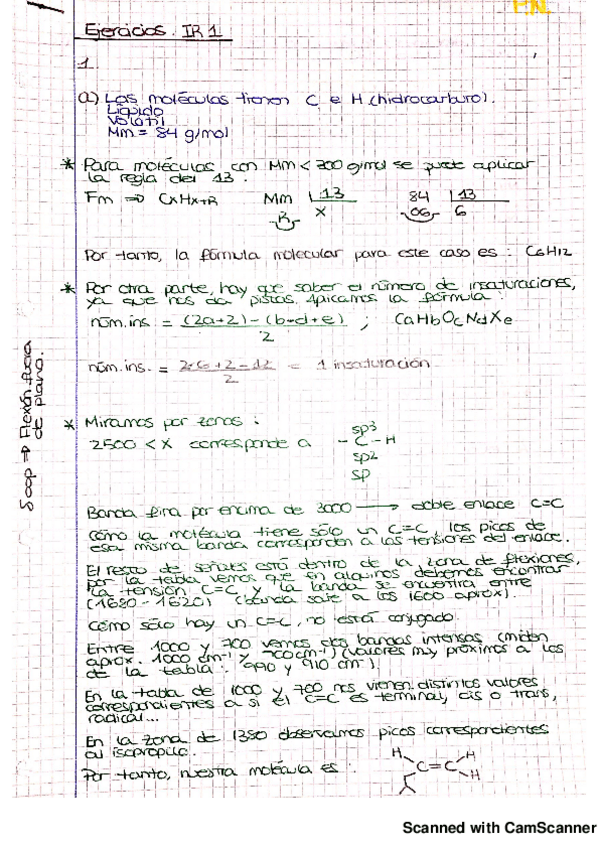 H.N.
Ejercicios. IR 1
1.
a) Las moléculas tienen C e H (hidrocarburo).
Líquido
Volátil
Mm = 84 g/mol
* Para moléculas con Mm < 200 g/mol se puede aplicar
la regla del 13.
Fm ⇒ CxHx+R   Mm | 13   84 | 13
R   X   06   6
Por tanto, la fórmula molecular para este caso es : C6H12
* Por otra parte, hay que saber el número de insaturaciones,
ya que nos da pistas. Aplicamos la fórmula :
núm.ins. = (2a+2) - (b-d+e) / 2 ; CaHbOcNdXe
núm.ins. = 2·6+2-12 / 2 = 1 insaturación
5oop ⇒ Flexión fuera
de plano.
* Miramos por zonas :
2500 < X corresponde a - C - H
sp3
sp2
sp
Banda fina por encima de 3000 → doble enlace C=C
Cómo la molécula tiene sólo un C=C, los picos de
esa misma banda corresponden a las tensiones del enlace.
El resto de señales está dentro de la zona de flexiones,
por la tabla vemos que en alquenos debemos encontrar
la tensión C=C y la banda se encuentra entre
(1680 - 1620) (banda sale a los 1600 aprox).
Cómo sólo hay un C=C, no está conjugado.
Entre 1000 y 700 vemos dos bandas intensas (miden
aprox. 1000 cm-1 y 900 cm-1) (valores muy próximos a los
de la tabla : 990 y 910 cm-1)
En la tabla de 1000 y 700 nos vienen distintos valores
correspondientes a si el C=C es terminal, cis o trans,
radical...
En la zona de 1380 observamos picos correspondientes
al isopropilo.
Por tanto, nuestra molécula es :
H H
C=C
H
Scanned with CamScanner